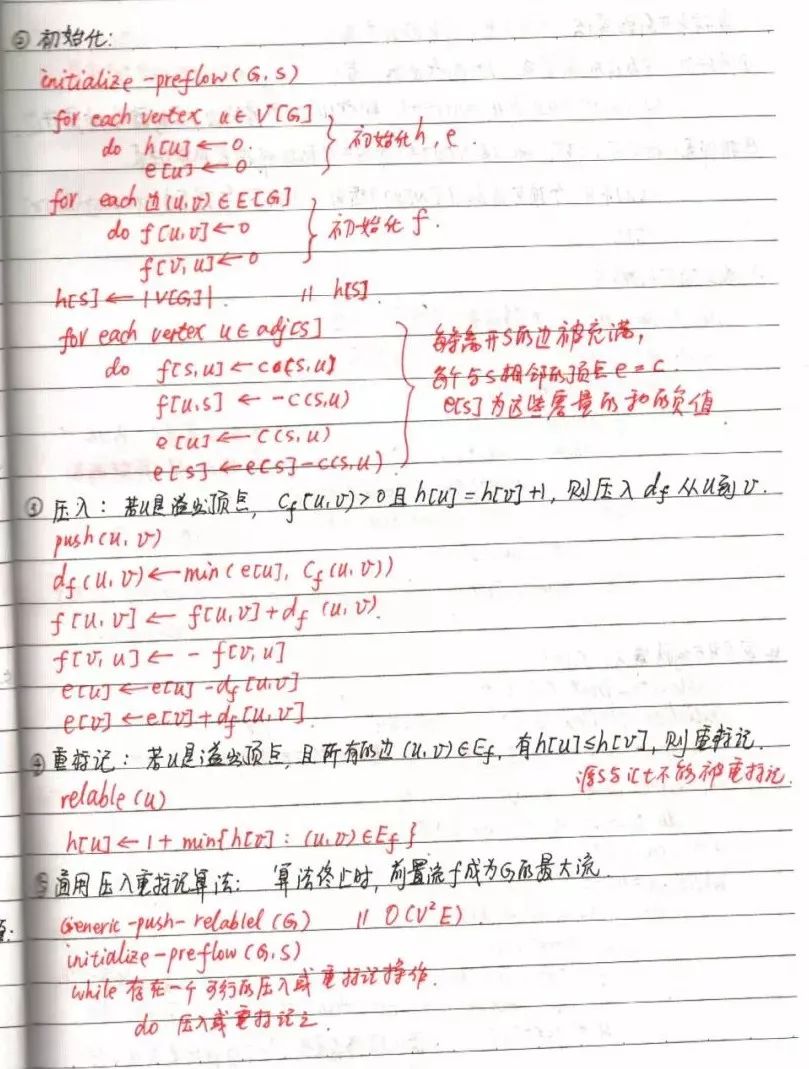 ② 初始化:
initialize-preflow(G,S)
for each vertex u∈V[G]
do h[u]←0.
e[u]←0.
初始化h,e.
for each 边(u,v)∈E[G]
do f[u,v]←0
f[v,u]←0
初始化 f.
h[s]←|V[G]|. // h[s]
for each vertex u∈adj[s]
do f[s,u]←c(s,u)
f[u,s]←-c(s,u)
e[u]←c(s,u)
e[s]←e[s]-c(s,u)
每条离开s的边被充满,
每个与s相邻的顶点e=c.
e[s]为这些容量的和的负值
③ 压入: 若u是溢出顶点, Cf(u,v)>0且h[u]=h[v]+1, 则压入 df 从u到v.
push(u,v)
df(u,v)←min(e[u], Cf(u,v))
f[u,v]←f[u,v]+df(u,v).
f[v,u]←-f[v,u]
e[u]←e[u]-df[u,v]
e[v]←e[v]+df[u,v]
④ 重标记: 若u是溢出顶点,且所有的边(u,v)∈Ef, 有h[u]≤h[v], 则重标记.
源s与汇t不能被重标记.
relable(u)
h[u]←1+min{h[v]:(u,v)∈Ef}
⑤ 通用压入重标记算法: 算法终止时,前置流f成为G的最大流.
Generic-push-relablel(G) // O(V²E)
initialize-preflow(G,S)
while 存在一个可行的压入或重标记操作.
do 压入或重标记之.